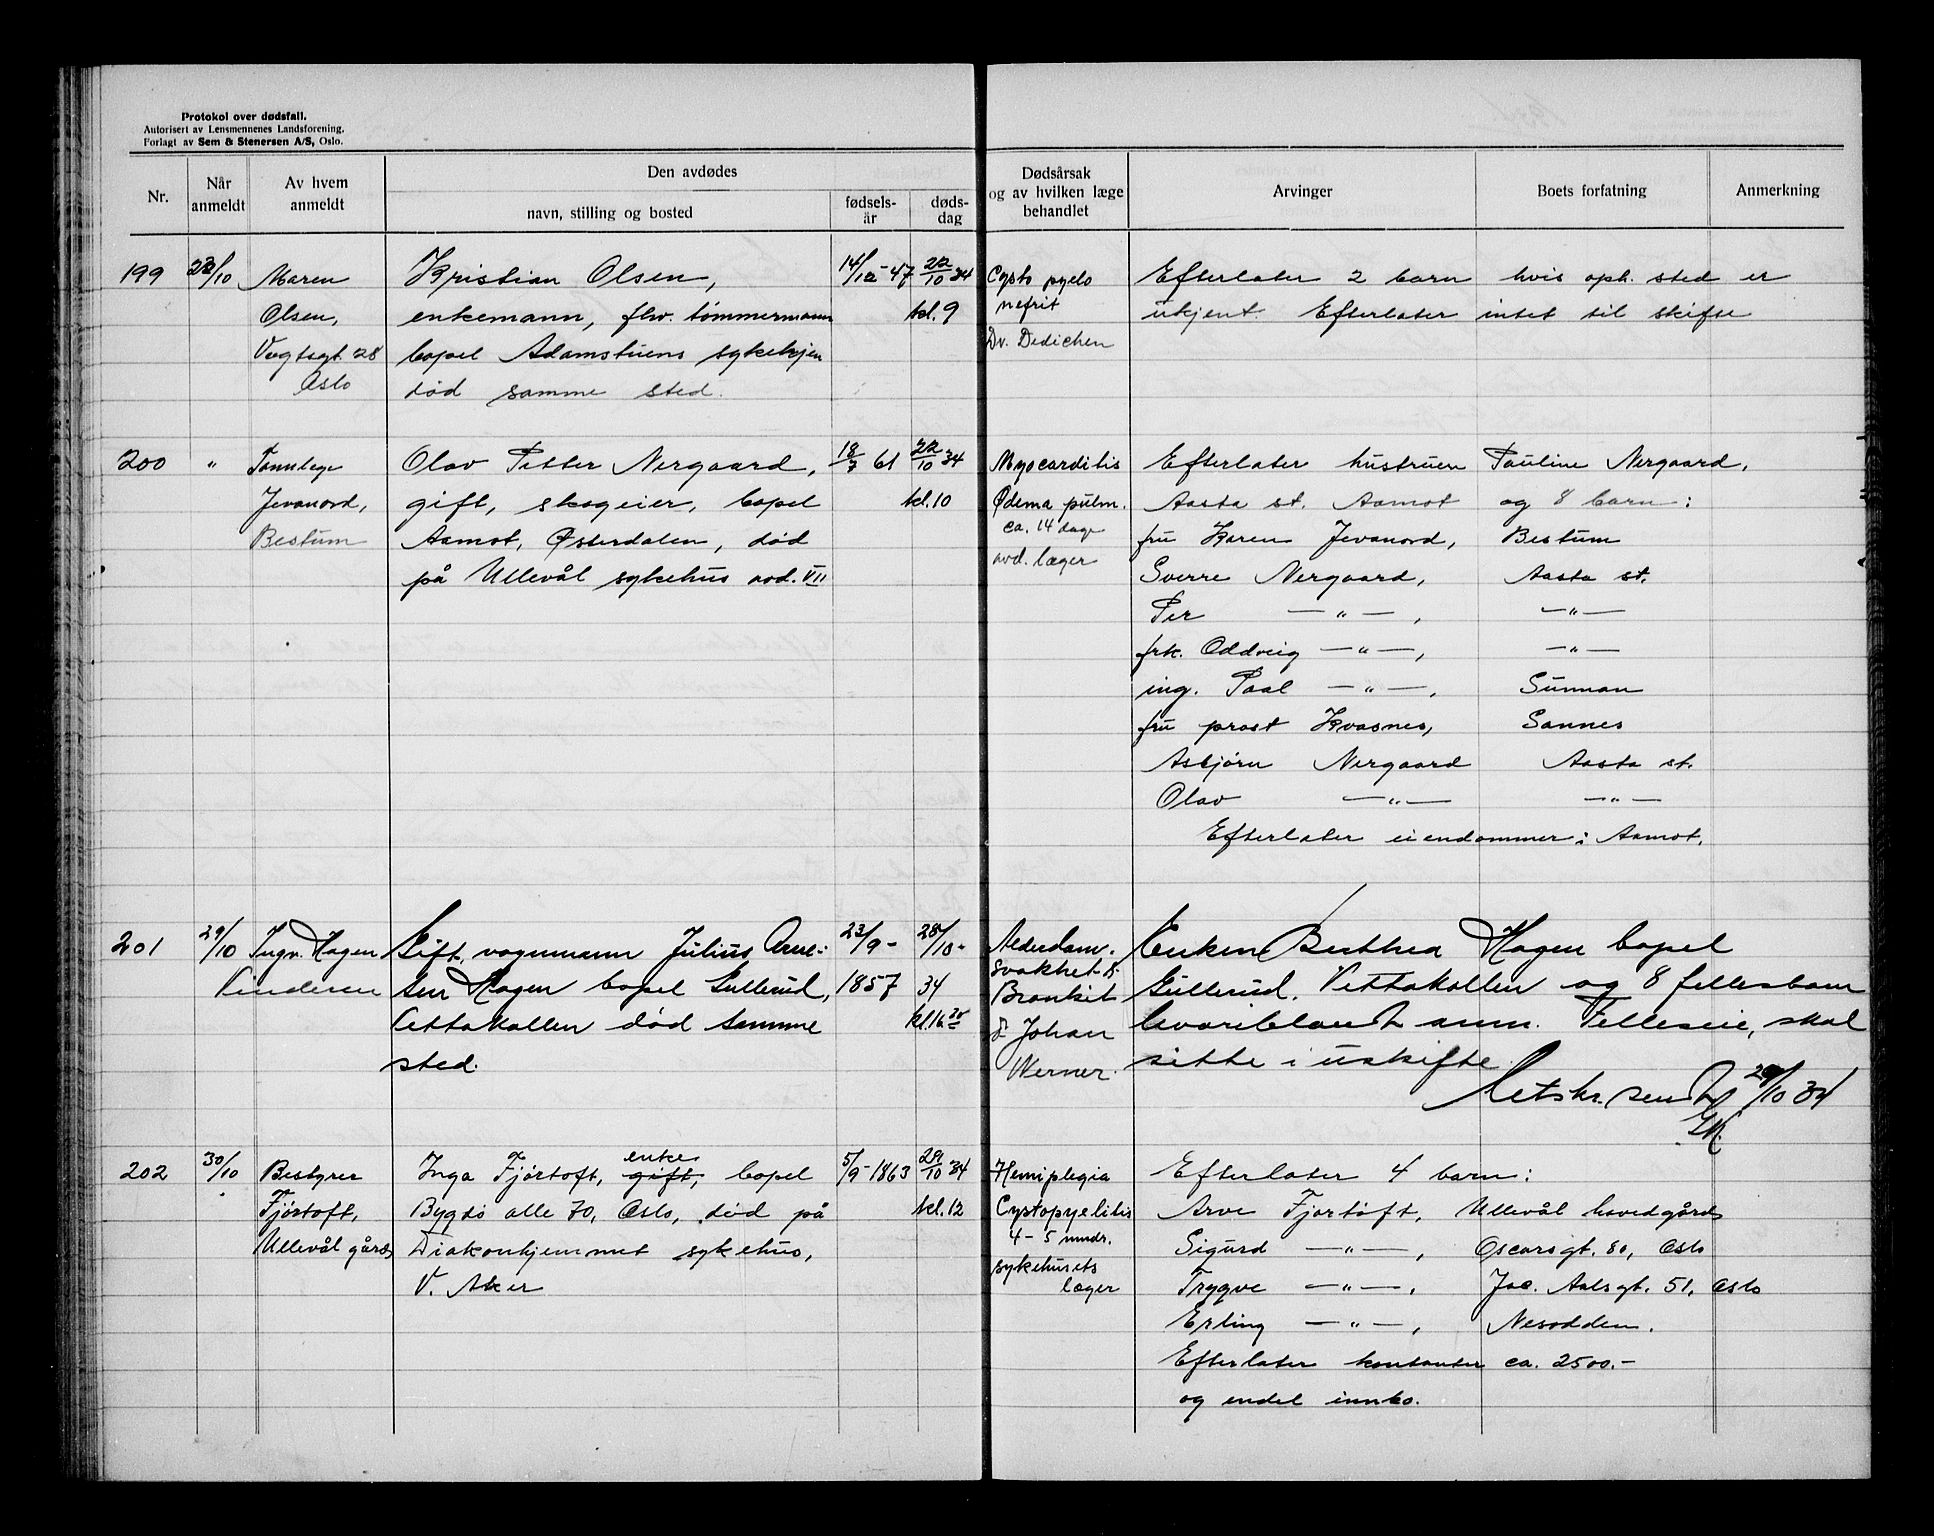 Protokol over dødsfall.
Autorisert av Lensmennenes Landsforening.
Forlagt av Sem & Stenersen A/S, Oslo.
Nr.
Når anmeldt
Av hvem anmeldt
Den avdødes
navn, stilling og bosted
fødsels-år
døds-dag
Dødsårsak og av hvilken læge behandlet
Arvinger
Boets forfatning
Anmerkning
199
23/10
Maren
Olsen,
Vogtsgt 28
Oslo
Kristian Olsen,
enkemann, fhv. tømmermann
bopel Adamstuens sykehjem
død samme sted.
14/12-47
22/10 34
kl. 9
Cysto pyelo
nefrit
Dr. Dedichen
Efterlater 2 barn hvis oph. sted er
ukjent. Efterlater intet til skifte
200
"
Tannlege
Jevanord,
Bestum
Olav Petter Nergaard,
gift, skogeier, bopel
Aamot, Østerdalen, død
på Ullevål sykehus avd. VII
18/7 61
22/10 34
kl. 10
Myocarditis
Ødema pulm.
ca. 14 dage
avd. læger
Efterlater hustruen Pauline Nergaard,
Aasta st. Aamot og 8 barn:
fru Karen Jevanord, Bestum
Sverre Nergaard, Aasta st.
Per — " — , — " —
frk. Oddveig — " — , — " —
ing. Paal — " — , Sunnan
fru prost Kvasnes, Sannes
Asbjørn Nergaard Aasta st.
Olav — " — — " —
Efterlater eiendommer i Aamot.
201
29/10
Ingv. Hagen
Vinderen
Gift, vognmann Julius Arne-
sen Hagen bopel Gullerud,
Vettakollen død samme
sted.
23/9-
1857
28/10-
34
kl. 16
Alderdom.
svakhet &
Bronkit
dr Johan
Werner.
Enken Berthea Hagen bopel
Gullerud, Vettakollen og 8 fellesbarn
hvoriblandt anm. Felleseie, skal
sitte i uskifte
Attskr. sendt 29/10 34
202
30/10
Bestyrer
Fjørtoft,
Ullevål gård
Inga Fjørtoft, gift, enke bopel
Bygdø alle 70, Oslo, død på
Diakonhjemmet sykehus,
V. Aker
5/9-1863
29/10 34
kl. 12
Hemiplegia
Cystopyelitis
4-5 mndr.
sykehusets
læger
Efterlater 4 barn:
Arve Fjørtoft, Ullevål hovedgård
Sigurd — " — , Oscarsgt. 80, Oslo
Trygve — " — , Jac. Aalsgt. 51, Oslo
Erling — " — , Nesodden.
Efterlater kontanter ca. 2500.-
og endel innbo.